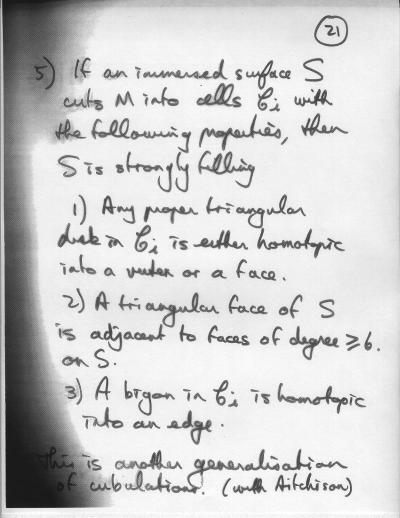 21
5) If an immersed surface S
cuts M into cells C_i with
the following properties, then
S is strongly filling
1) Any proper triangular
disk in C_i is either homotopic
into a vertex or a face.
2) A triangular face of S
is adjacent to faces of degree ≥ 6.
on S.
3) A bigon in C_i is homotopic
into an edge.
This is another generalisation
of cubulations. (with Aitchison)